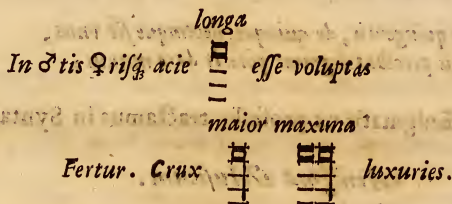 longa
In ♂tis ♀risq́ꝫ acie eſſe voluptas
maior maxuma
Fertur. Crux luxuries.